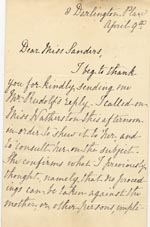 8 Darlington Place
April 9th
Dear Miss Sanders,
I beg to thank
you for kindly sending me
Mr Rudolf's reply. I called on
Miss Watherston this afternoon
in order to shew it to her and
to consult her on the subject.
She confirms what I previously
thought, namely, that no proceed-
ings can be taken against the
mother, or other persons impli-